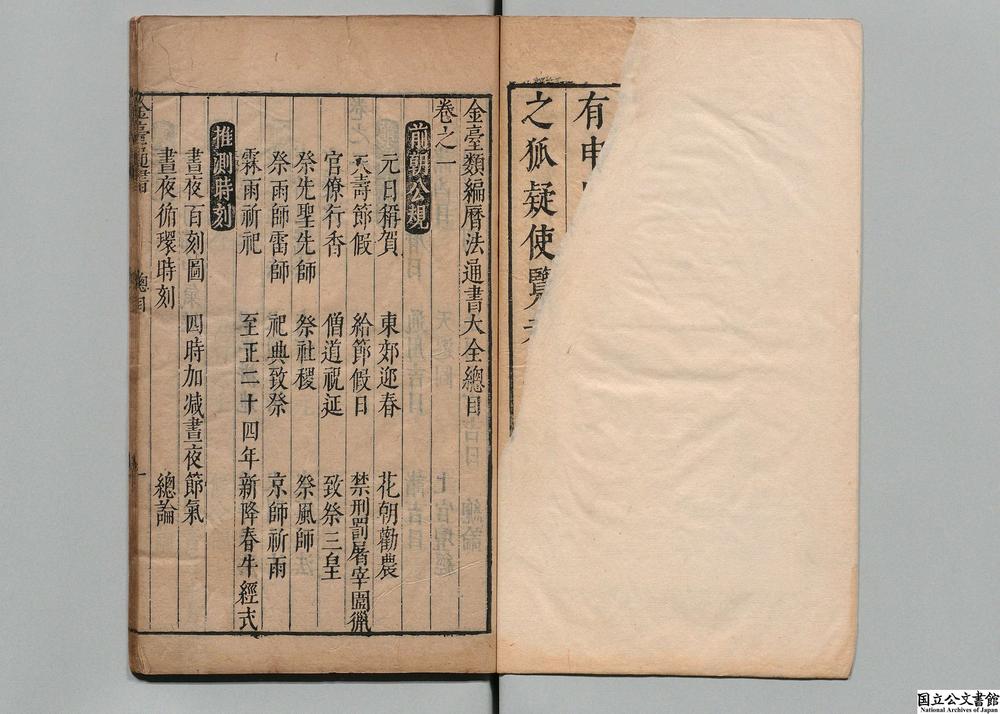 有申
之狐疑使覽
金臺類編曆法通書大全總目
卷之一
前朝公規
元日稱賀 東郊迎春 花朝勸農
天壽節假 給節假日 禁刑罰屠宰圍獵
官僚行香 僧道祝延 致祭三皇
祭先聖先師 祭社稷 祭風師
祭雨師雷師 祀典致祭 京師祈雨
霖雨祈祀 至正二十四年新降春牛經式
推測時刻
晝夜百刻圖 四時加減晝夜節氣
晝夜循環時刻 總論
金臺通書 總目 一
国立公文書館
National Archives of Japan